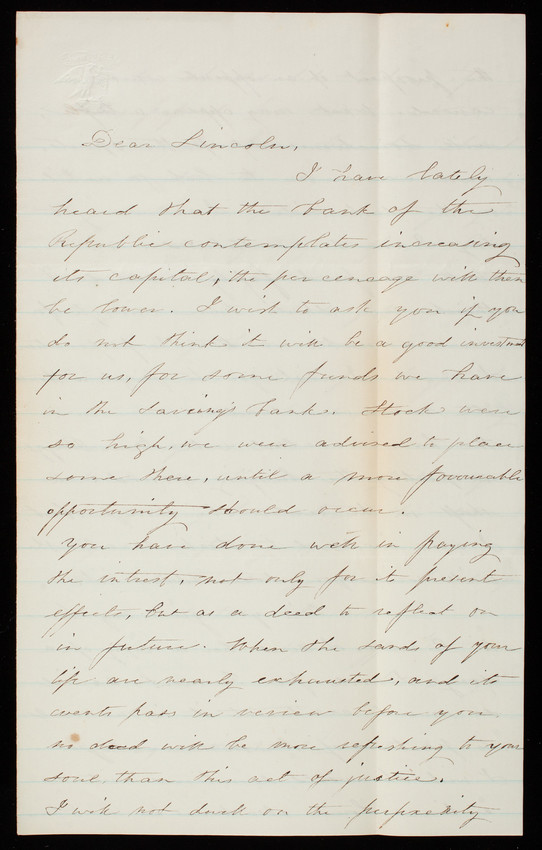 Dear Lincoln,
I have lately
heard that the bank of the
Republic contemplates increasing
its capital, the percenage will then
be lower. I wish to ask you if you
do not think it will be a good investment
for us, for some funds we have
in the savings bank. Stock were
so high, we were advised to place
some there, until a more favourable
opportunity should occur.
You have done well in paying
the intrest, not only for its present
effects, but as a deed to reflect on
in future. When the sands of your
life are nearly exhausted, and its
events pass in review before you
no deed will be more refreshing to your
soul, than this act of justice.
I will not duck on the